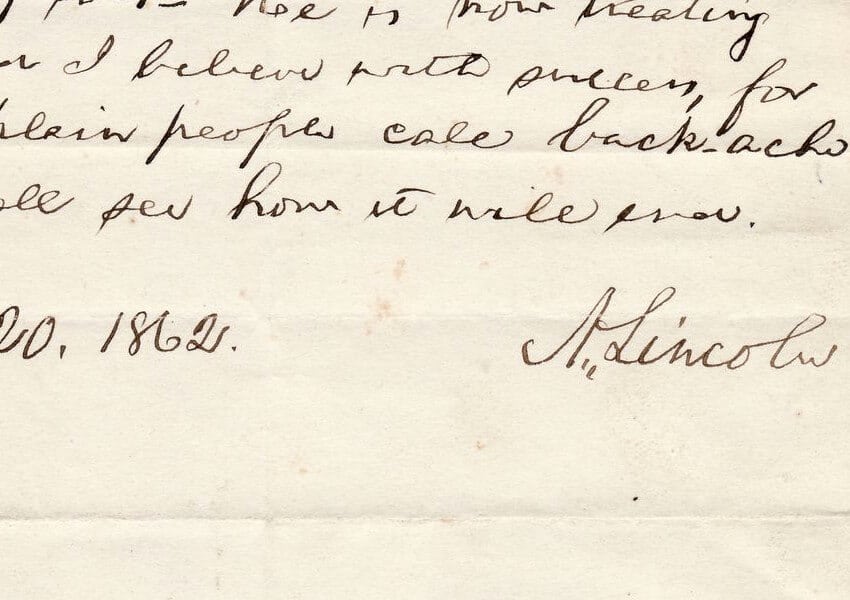 He is now treating
I believe with success, for
plain people call back-ache
see how it will end.
20, 1862.
A. Lincoln